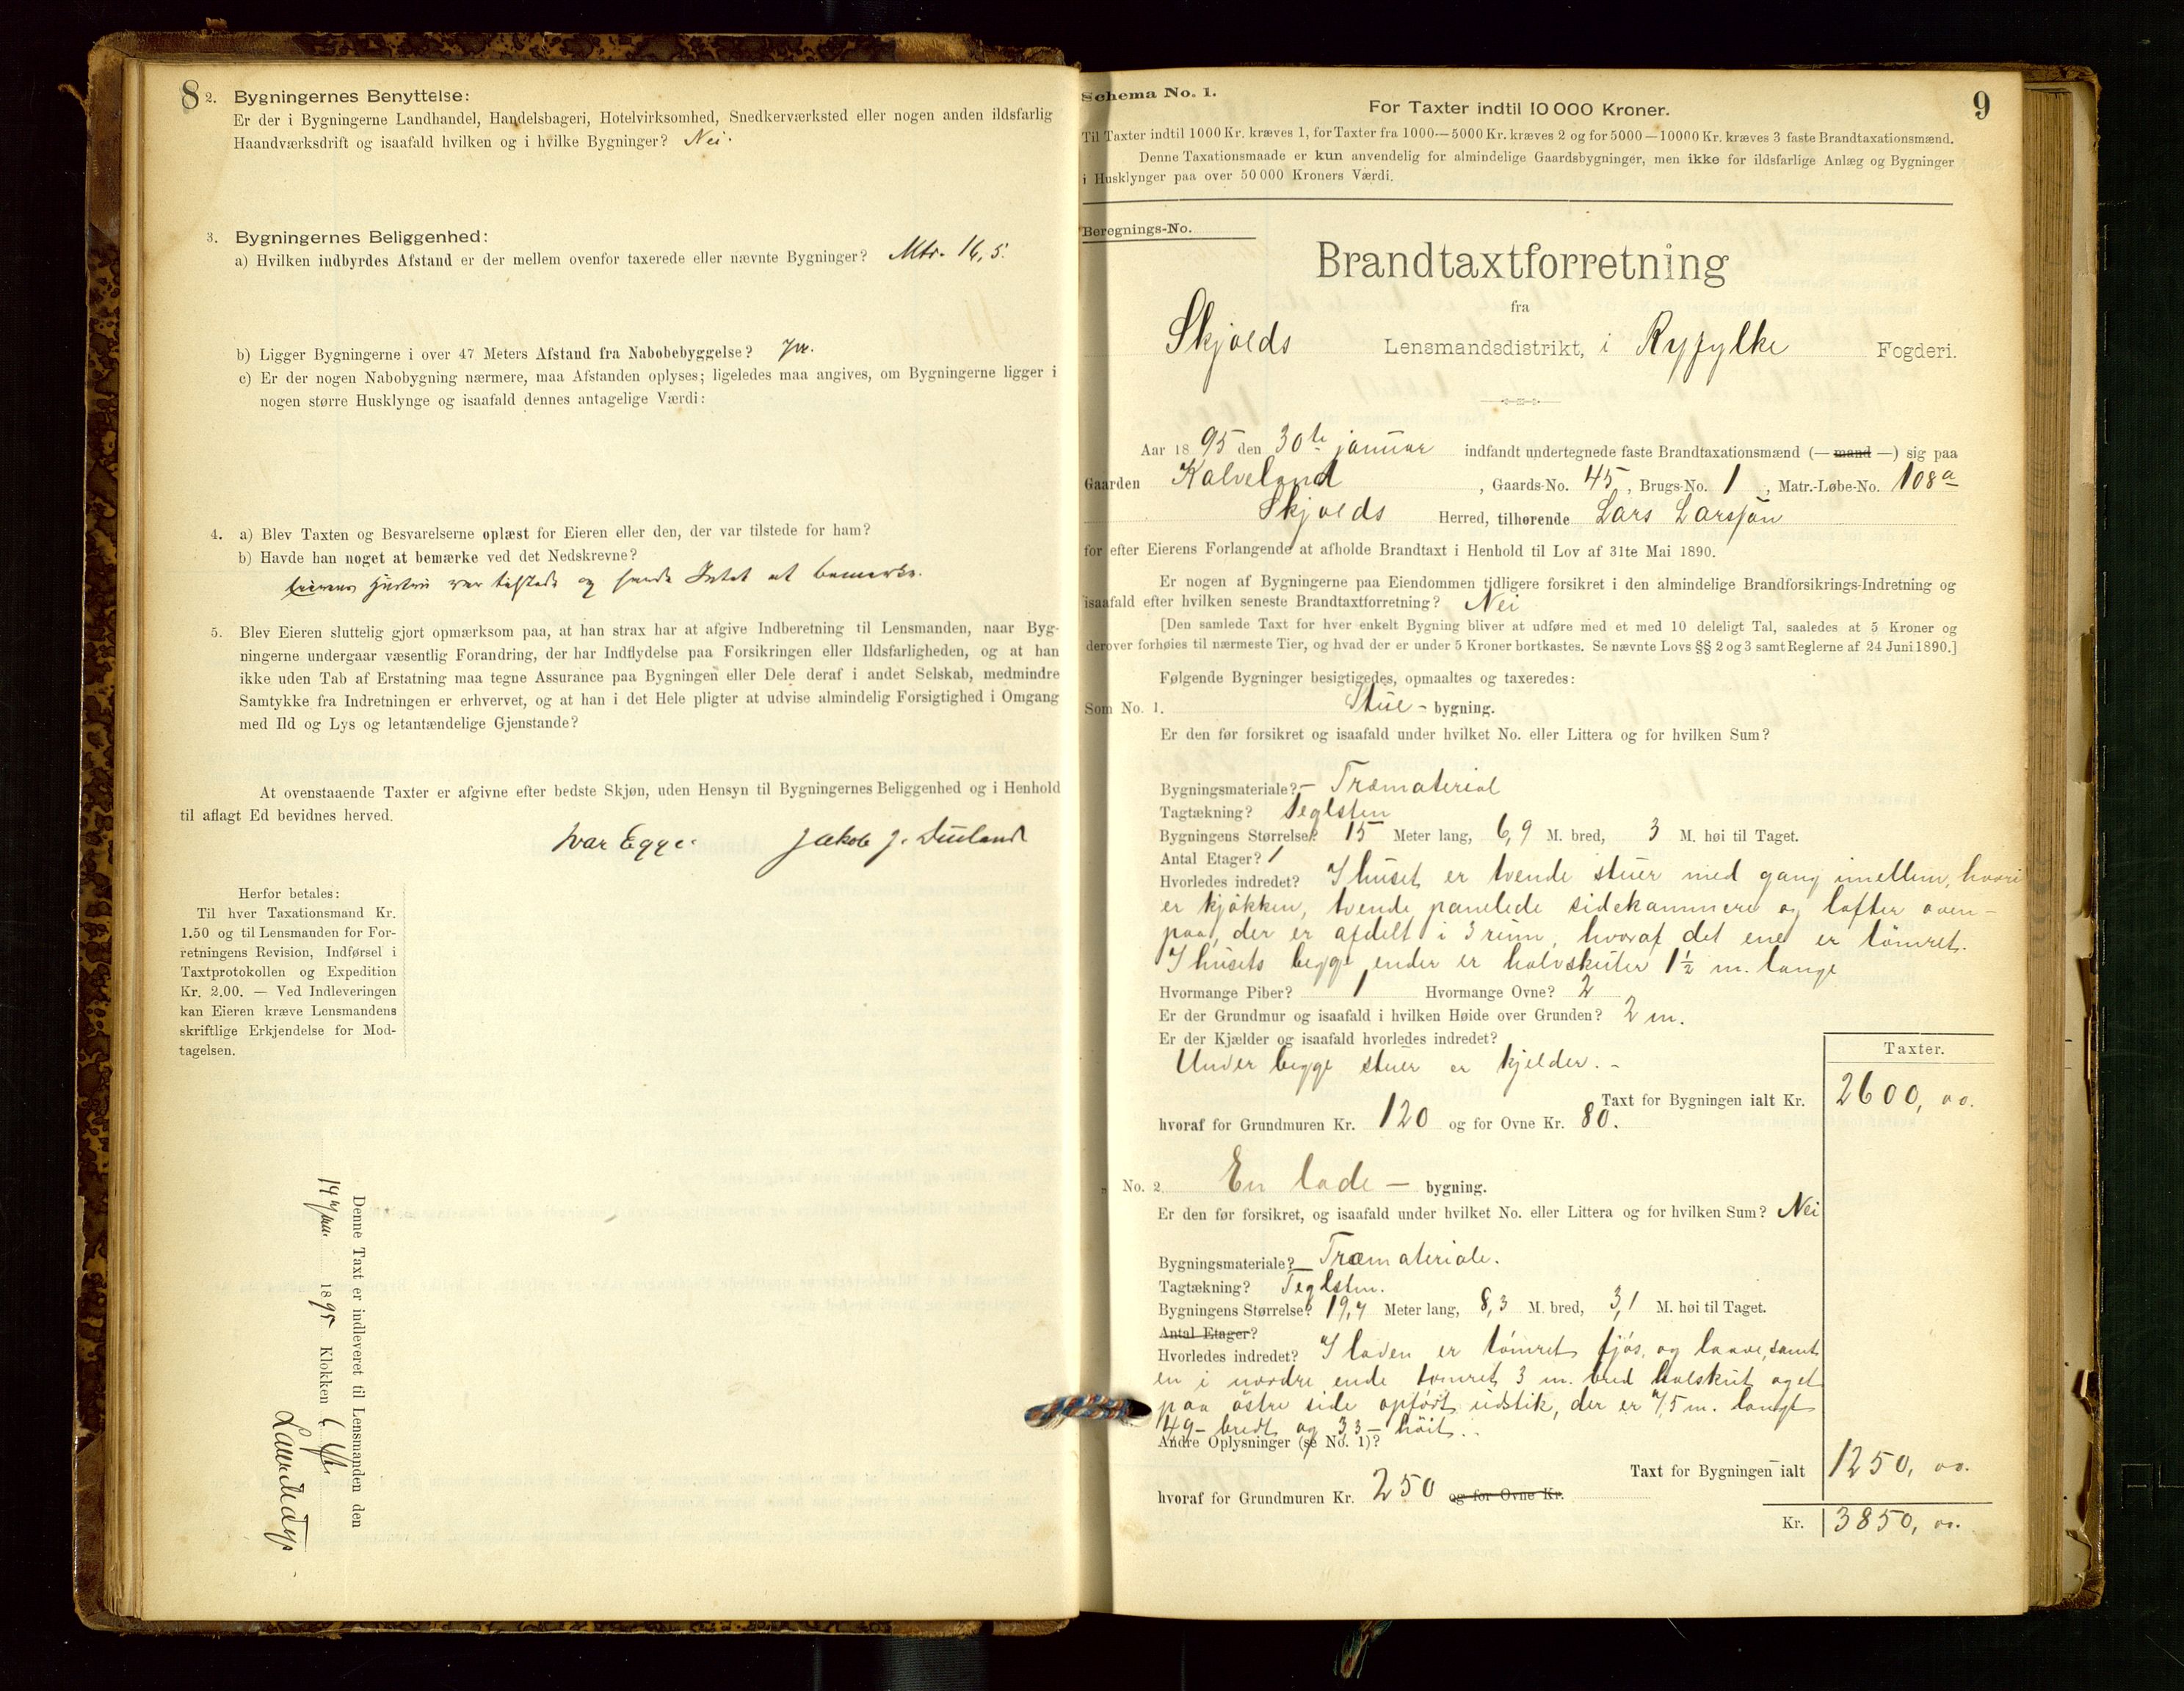 8
2. Bygningernes Benyttelse:
Er der i Bygningerne Landhandel, Handelsbageri, Hotelvirksomhed, Snedkerværksted eller nogen anden ildsfarlig
Haandværksdrift og isaafald hvilken og i hvilke Bygninger? Nei.
3. Bygningernes Beliggenhed:
a) Hvilken indbyrdes Afstand er der mellem ovenfor taxerede eller nævnte Bygninger? Mtr. 16,5.
b) Ligger Bygningerne i over 47 Meters Afstand fra Nabobebyggelse? Ja.
c) Er der nogen Nabobygning nærmere, maa Afstanden oplyses; ligeledes maa angives, om Bygningerne ligger i
nogen større Husklynge og isaafald dennes antagelige Værdi:
4. a) Blev Taxten og Besvarelserne oplæst for Eieren eller den, der var tilstede for ham?
b) Havde han noget at bemærke ved det Nedskrevne?
Eierens hustru var tilstede og havde Intet at bemærke.
5. Blev Eieren sluttelig gjort opmærksom paa, at han strax har at afgive Indberetning til Lensmanden, naar Byg-
ningerne undergaar væsentlig Forandring, der har Indflydelse paa Forsikringen eller Ildsfarligheden, og at han
ikke uden Tab af Erstatning maa tegne Assurance paa Bygningen eller Dele deraf i andet Selskab, medmindre
Samtykke fra Indretningen er erhvervet, og at han i det Hele pligter at udvise almindelig Forsigtighed i Omgang
med Ild og Lys og letantændelige Gjenstande?
At ovenstaaende Taxter er afgivne efter bedste Skjøn, uden Hensyn til Bygningernes Beliggenhed og i Henhold
til aflagt Ed bevidnes herved.
Ivar Egge. Jakob J.
Herfor betales:
Til hver Taxationsmand Kr.
1.50 og til Lensmanden for For-
retningens Revision, Indførsel i
Taxtprotokollen og Expedition
Kr. 2.00. — Ved Indleveringen
kan Eieren kræve Lensmandens
skriftlige Erkjendelse for Mod-
tagelsen.
Denne Taxt er indleveret til Lensmanden den
1895 Klokken
9
Schema No. 1.
For Taxter indtil 10 000 Kroner.
Til Taxter indtil 1000 Kr. kræves 1, for Taxter fra 1000—5000 Kr. kræves 2 og for 5000—10000 Kr. kræves 3 faste Brandtaxationsmænd.
Denne Taxationsmaade er kun anvendelig for almindelige Gaardsbygninger, men ikke for ildsfarlige Anlæg og Bygninger
i Husklynger paa over 50 000 Kroners Værdi.
Beregnings-No.
Brandtaxtforretning
fra
Skjolds Lensmandsdistrikt, i Ryfylke Fogderi.
Aar 1895 den 30te januar indfandt undertegnede faste Brandtaxationsmænd (— mand —) sig paa
Gaarden Kalveland, Gaards-No. 45, Brugs-No. 1, Matr.-Løbe-No. 108a
Skjolds Herred, tilhørende Lars Larsson
for efter Eierens Forlangende at afholde Brandtaxt i Henhold til Lov af 31te Mai 1890.
Er nogen af Bygningerne paa Eiendommen tidligere forsikret i den almindelige Brandforsikrings-Indretning og
isaafald efter hvilken seneste Brandtaxtforretning? Nei
[Den samlede Taxt for hver enkelt Bygning bliver at udføre med et med 10 deleligt Tal, saaledes at 5 Kroner og
derover forhøies til nærmeste Tier, og hvad der er under 5 Kroner bortkastes. Se nævnte Lovs §§ 2 og 3 samt Reglerne af 24 Juni 1890.]
Følgende Bygninger besigtigedes, opmaaltes og taxeredes:
Som No. 1. Stue - bygning.
Er den før forsikret og isaafald under hvilket No. eller Littera og for hvilken Sum?
Bygningsmateriale? - Træmaterial
Tagtækning? Teglsten
Bygningens Størrelse? 15 Meter lang, 6,9 M. bred, 3 M. høi til Taget.
Antal Etager? 1
Hvorledes indredet? I huset er tvende stuer med gang imellem, hvori
er kjøkken, tvende panelede sidekammere og lofter oven-
paa, der er afdelt i 3 rum, hvoraf det ene er tømret.
I husets begge ender er halvskuter 1½ m. lange
Hvormange Piber? 1 Hvormange Ovne? 2
Er der Grundmur og isaafald i hvilken Høide over Grunden? 2 m.
Er der Kjælder og isaafald hvorledes indredet?
Under begge stuer er kjelder. -
Taxter.
Taxt for Bygningen ialt Kr. 2600, oo.
hvoraf for Grundmuren Kr. 120 og for Ovne Kr. 80.
No. 2. En lade — bygning.
Er den før forsikret, og isaafald under hvilket No. eller Littera og for hvilken Sum? Nei
Bygningsmateriale? Træmateriale.
Tagtækning? Teglsten.
Bygningens Størrelse? 19,4 Meter lang, 8,3 M. bred, 3,1 M. høi til Taget.
Antal Etager?
Hvorledes indredet? I laden er tømret fjøs, og laave, samt
en i nordre ende tømret 3 m. bred halskut og et
paa østre side opført udstik, der er 7,5 m. langt
4,9 - bredt og 3,3 - høit.
Andre Oplysninger (se No. 1)?
Taxt for Bygningen ialt 1250, oo.
hvoraf for Grundmuren Kr. 250 og for Ovne Kr.
Kr. 3850, oo.